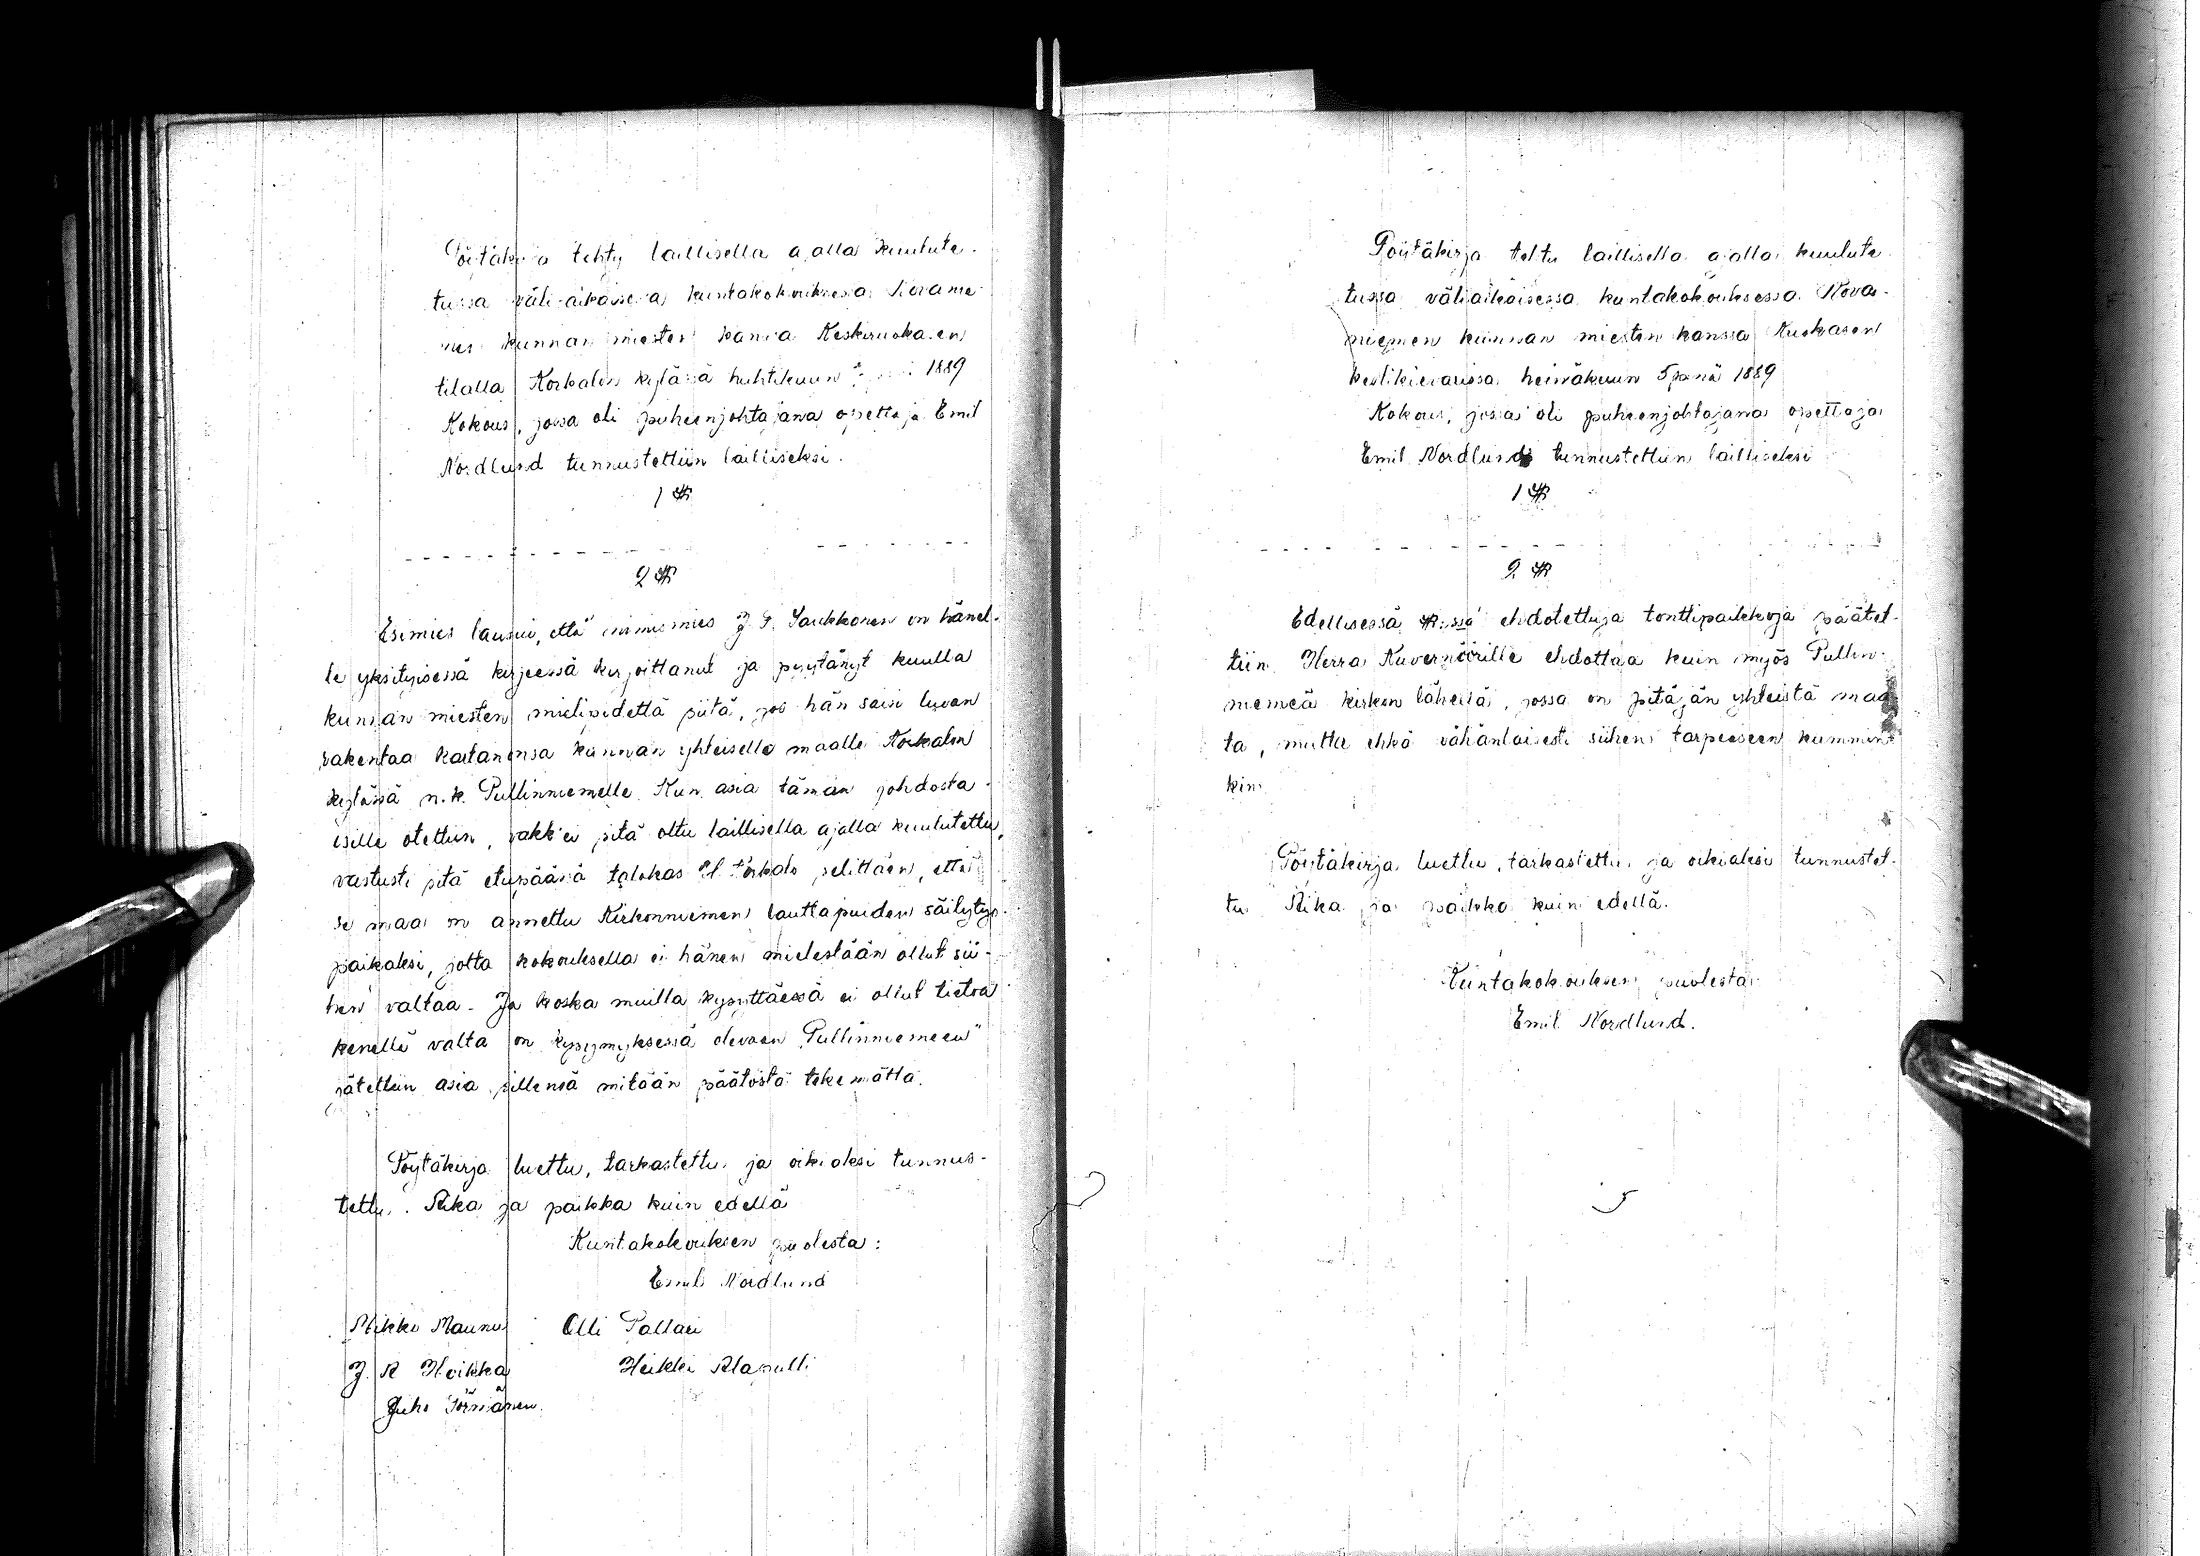 Pöytäkirja tehty laillisella ajalla kuulute-
tussa väliaikaisessa kuntakokouksessa Rovanie-
men kunnan miesten kanssa Keskiruokasen
tilalla Korkalon kylässä huhtikuun 1889
Kokous, jossa oli puheenjohtajana opettaja Emil
Nordlund tunnustettiin lailliseksi.
1 §
2 §
Esimies lausui, että nimismies J. F. Saukkonen on hänel-
le yksityisessä kirjeessä kirjoittanut ja pyytänyt kuulla
kunnan miesten mielipidettä siitä, jos hän saisi luvan
rakentaa kartanonsa kunnan yhteiselle maalle Korkalon
kylässä n.k. Pullinniemelle. Kun asia tämän johdosta
esille otettiin, vakk'ei sitä oltu laillisella ajalla kuulutettu,
vastusti sitä etupäässä talokas H. Korkalo selittäen, että
se maa on annettu Kirkonniemen lauttapuiden säilytys-
paikaksi, jotta kokouksella ei hänen mielestään ollut sii-
hen valtaa. Ja koska muilla kysyttäessä ei ollut tietoa
kenellä valta on kysymyksessä olevaan "Pullinniemeen"
jätettiin asia sillensä mitään päätöstä tekemättä.
Pöytäkirja luettu, tarkastettu ja oikiaksi tunnus-
tettu. Aika ja paikka kuin edellä
Kuntakokouksen puolesta:
Emil Nordlund
Mikko Maunu Olli Pallari
J. A Hoikka Heikki Alapulli
Juho Törmänen.
Pöytäkirja tehty laillisella ajalla kuulute
tussa väliaikaisessa kuntakokouksessa Rova-
niemen kunnan miesten kanssa Ruokasen
kestikievarissa heinäkuun 5 p:nä 1889
Kokous, jossa oli puheenjohtajana opettaja
Emil Nordlund tunnustettiin lailliseksi
1 §
2 §
Edellisessä §:ssä ehdotettuja tonttipaikkoja päätet-
tiin Herra Kuvernöörille ehdottaa kuin myös Pullin-
niemeä kirkon lähellä, jossa on pitäjän yhteistä maa-
ta, mutta ehkä vähänlaisesti siihen tarpeeseen kummin-
kin.
Pöytäkirja luettu, tarkastettu ja oikiaksi tunnustet-
tu Aika ja paikka kuin edellä.
Kuntakokouksen puolesta
Emil Nordlund.